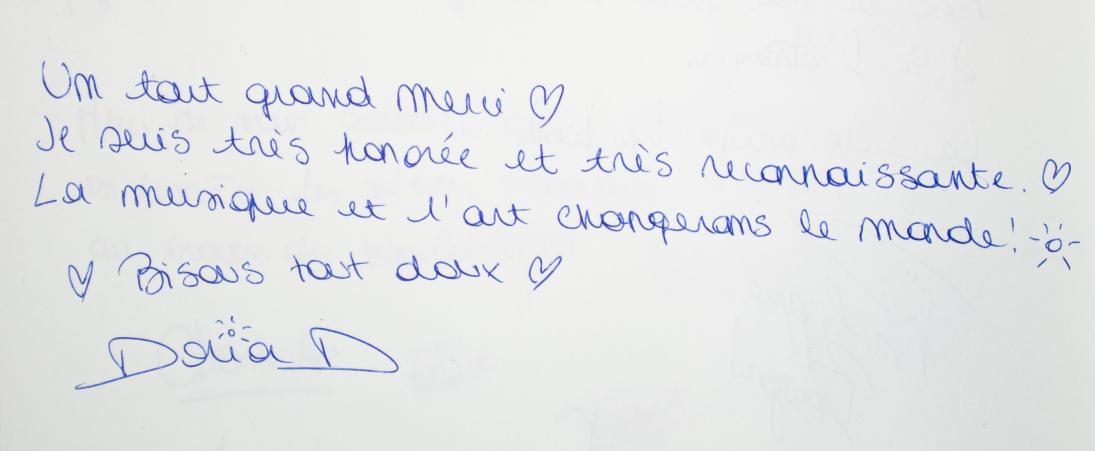 Un tout grand merci ♡
Je suis très honorée et très reconnaissante. ♡
La musique et l'art changerons le monde!
♡ Bisous tout doux ♡
Doria D